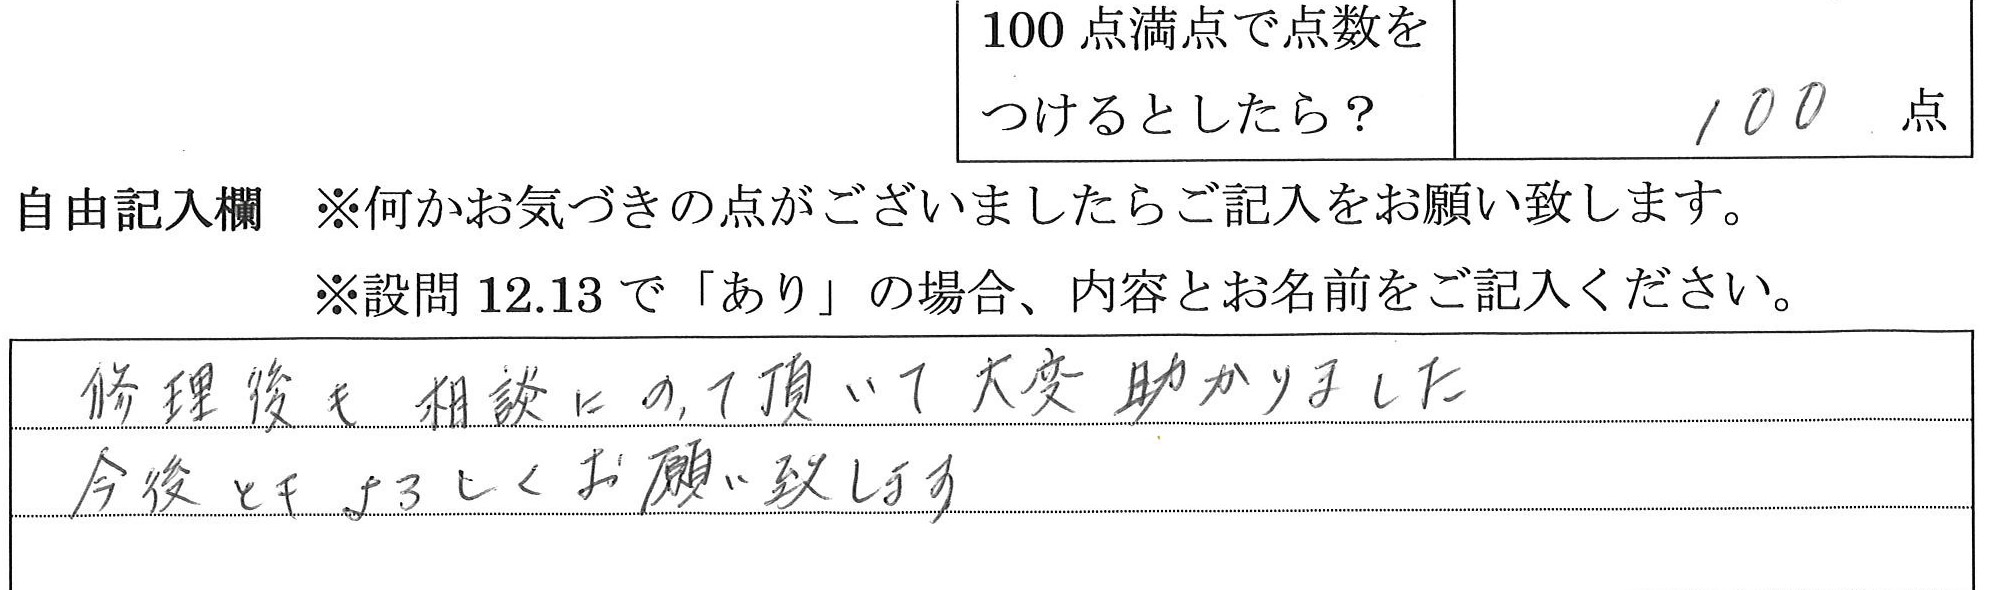 100 点満点で点数を
つけるとしたら？
100 点
自由記入欄 ※何かお気づきの点がございましたらご記入をお願い致します。
※設問 12.13 で「あり」の場合、内容とお名前をご記入ください。
修理後も相談にのって頂いて大変助かりました
今後ともよろしくお願い致します